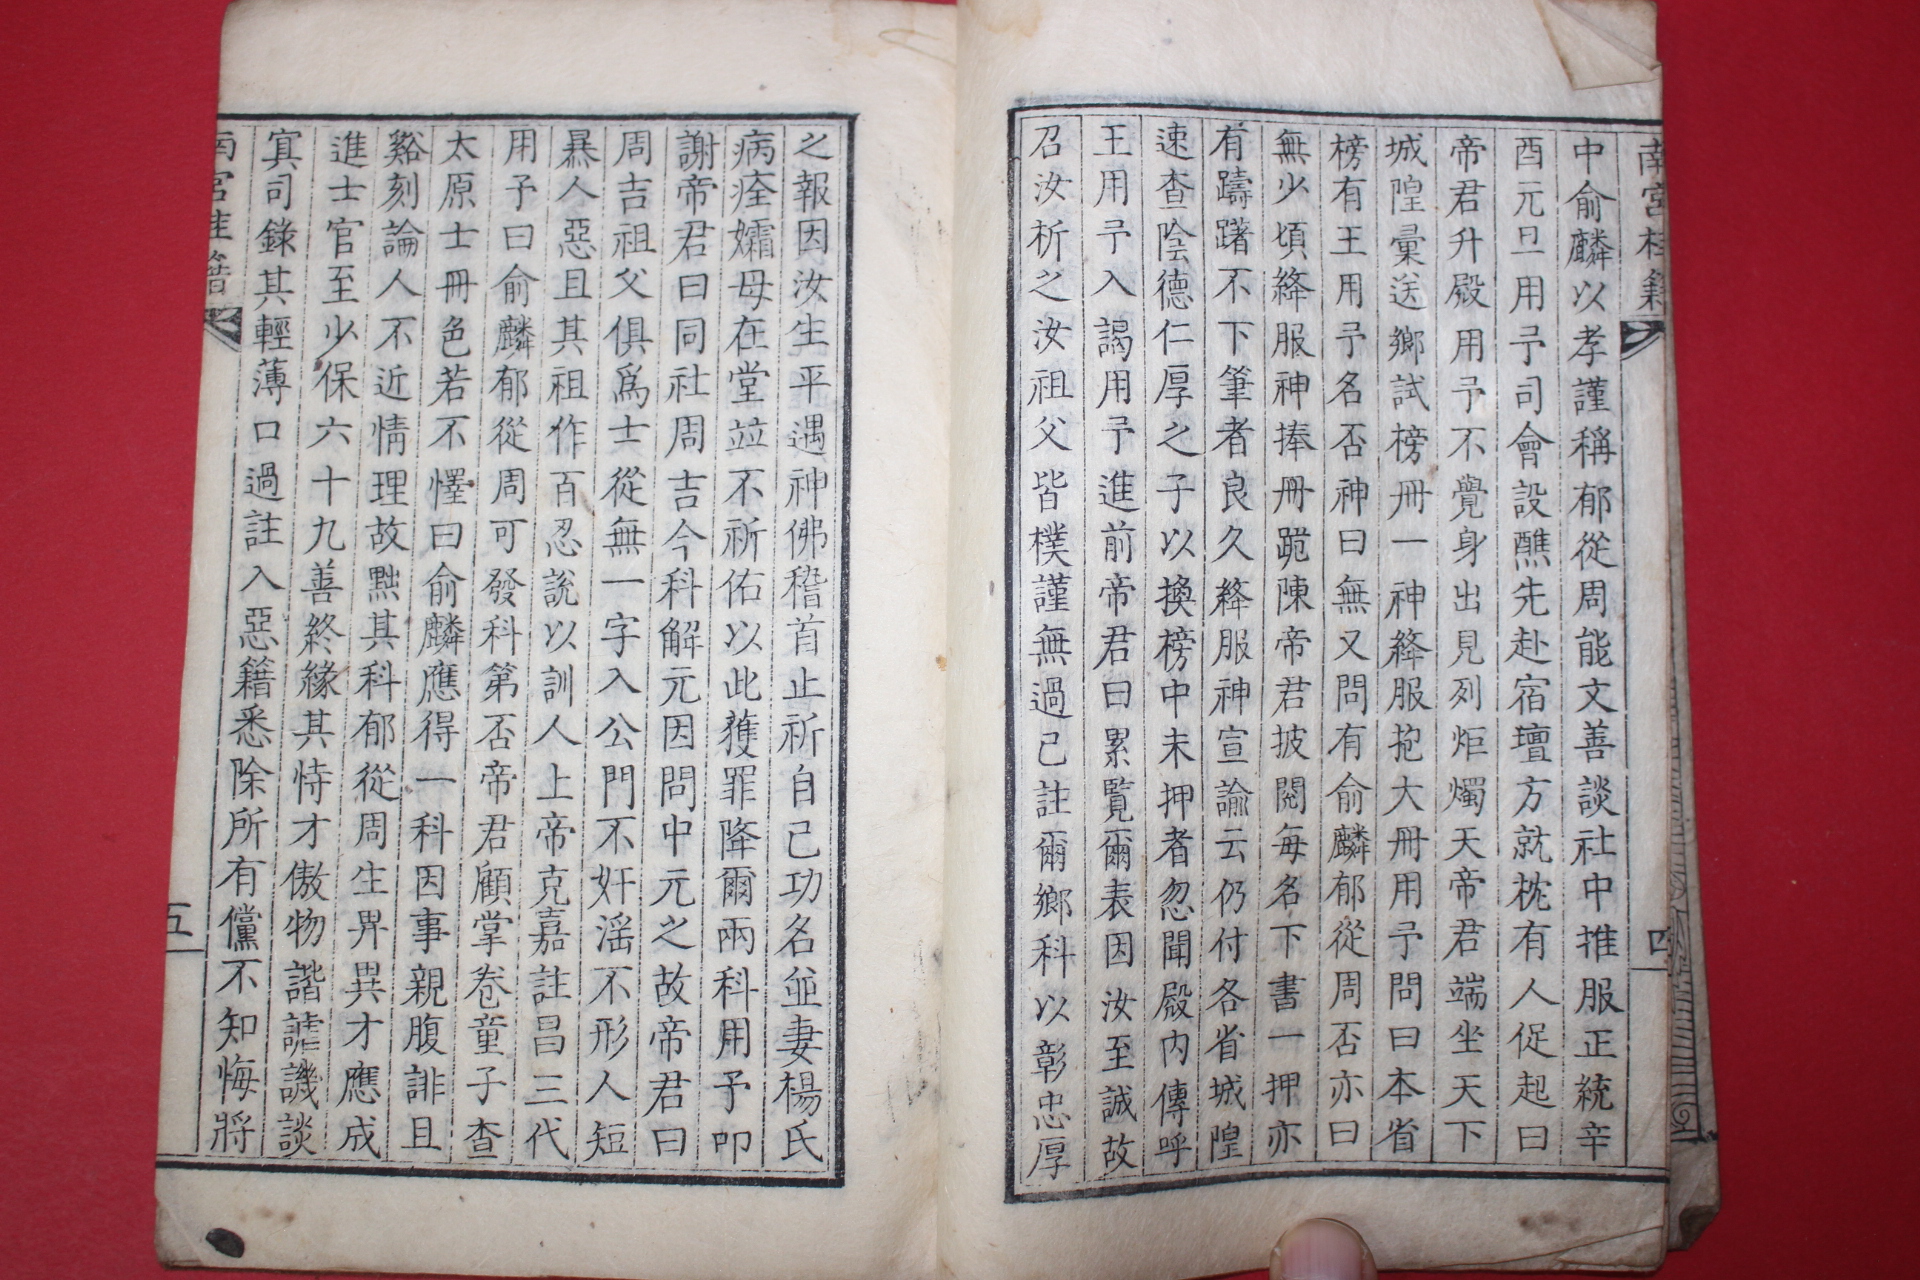 南宮桂籍
四
中俞麟以孝謹稱郁從周能文善談社中推服正統辛
酉元旦用予司會設醮先赴宿壇方就枕有人促起曰
帝君升殿用予不覺身出見列炬燭天帝君端坐天下
城隍彙送鄉試榜冊一神絳服抱大冊用予問曰本省
榜有王用予名否神曰無又問有俞麟郁從周否亦曰
無少頃絳服神捧冊跪陳帝君披閱每名下書一押亦
有躊躇不下筆者良久絳服神宣諭云仍付各省城隍
速查陰德仁厚之子以換榜中未押者忽聞殿內傳呼
王用予入謁用予進前帝君曰累覽爾表因汝至誠故
召汝析之汝祖父皆樸謹無過已註爾鄉科以彰忠厚
之報因汝生平遇神佛稽首止祈自己功名並妻楊氏
病痊孀母在堂並不祈佑以此獲罪降爾兩科用予叩
謝帝君曰同社周吉今科解元因問中元之故帝君曰
周吉祖父俱爲士從無一字入公門不奸滛不形人短
暴人惡且其祖作百忍說以訓人上帝克嘉註昌三代
用予曰俞麟郁從周可發科第否帝君顧掌卷童子查
太原士冊色若不懌曰俞麟應得一科因事親腹誹且
谿刻論人不近情理故黜其科郁從周生畀異才應成
進士官至少保六十九善終緣其恃才傲物諧謔譏談
冥司錄其輕薄口過註入惡籍悉除所有儻不知悔將
南宮桂籍
五